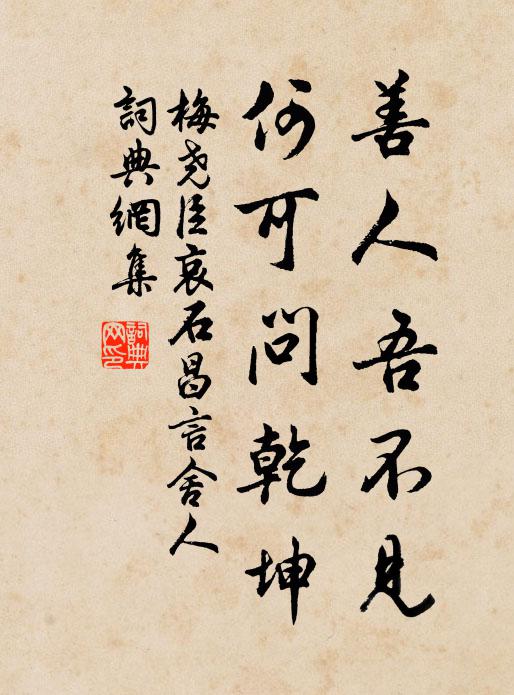 善人吾不見
何可問乾坤
梅尧臣哀石昌言舍人
詞典網集
詞典网印